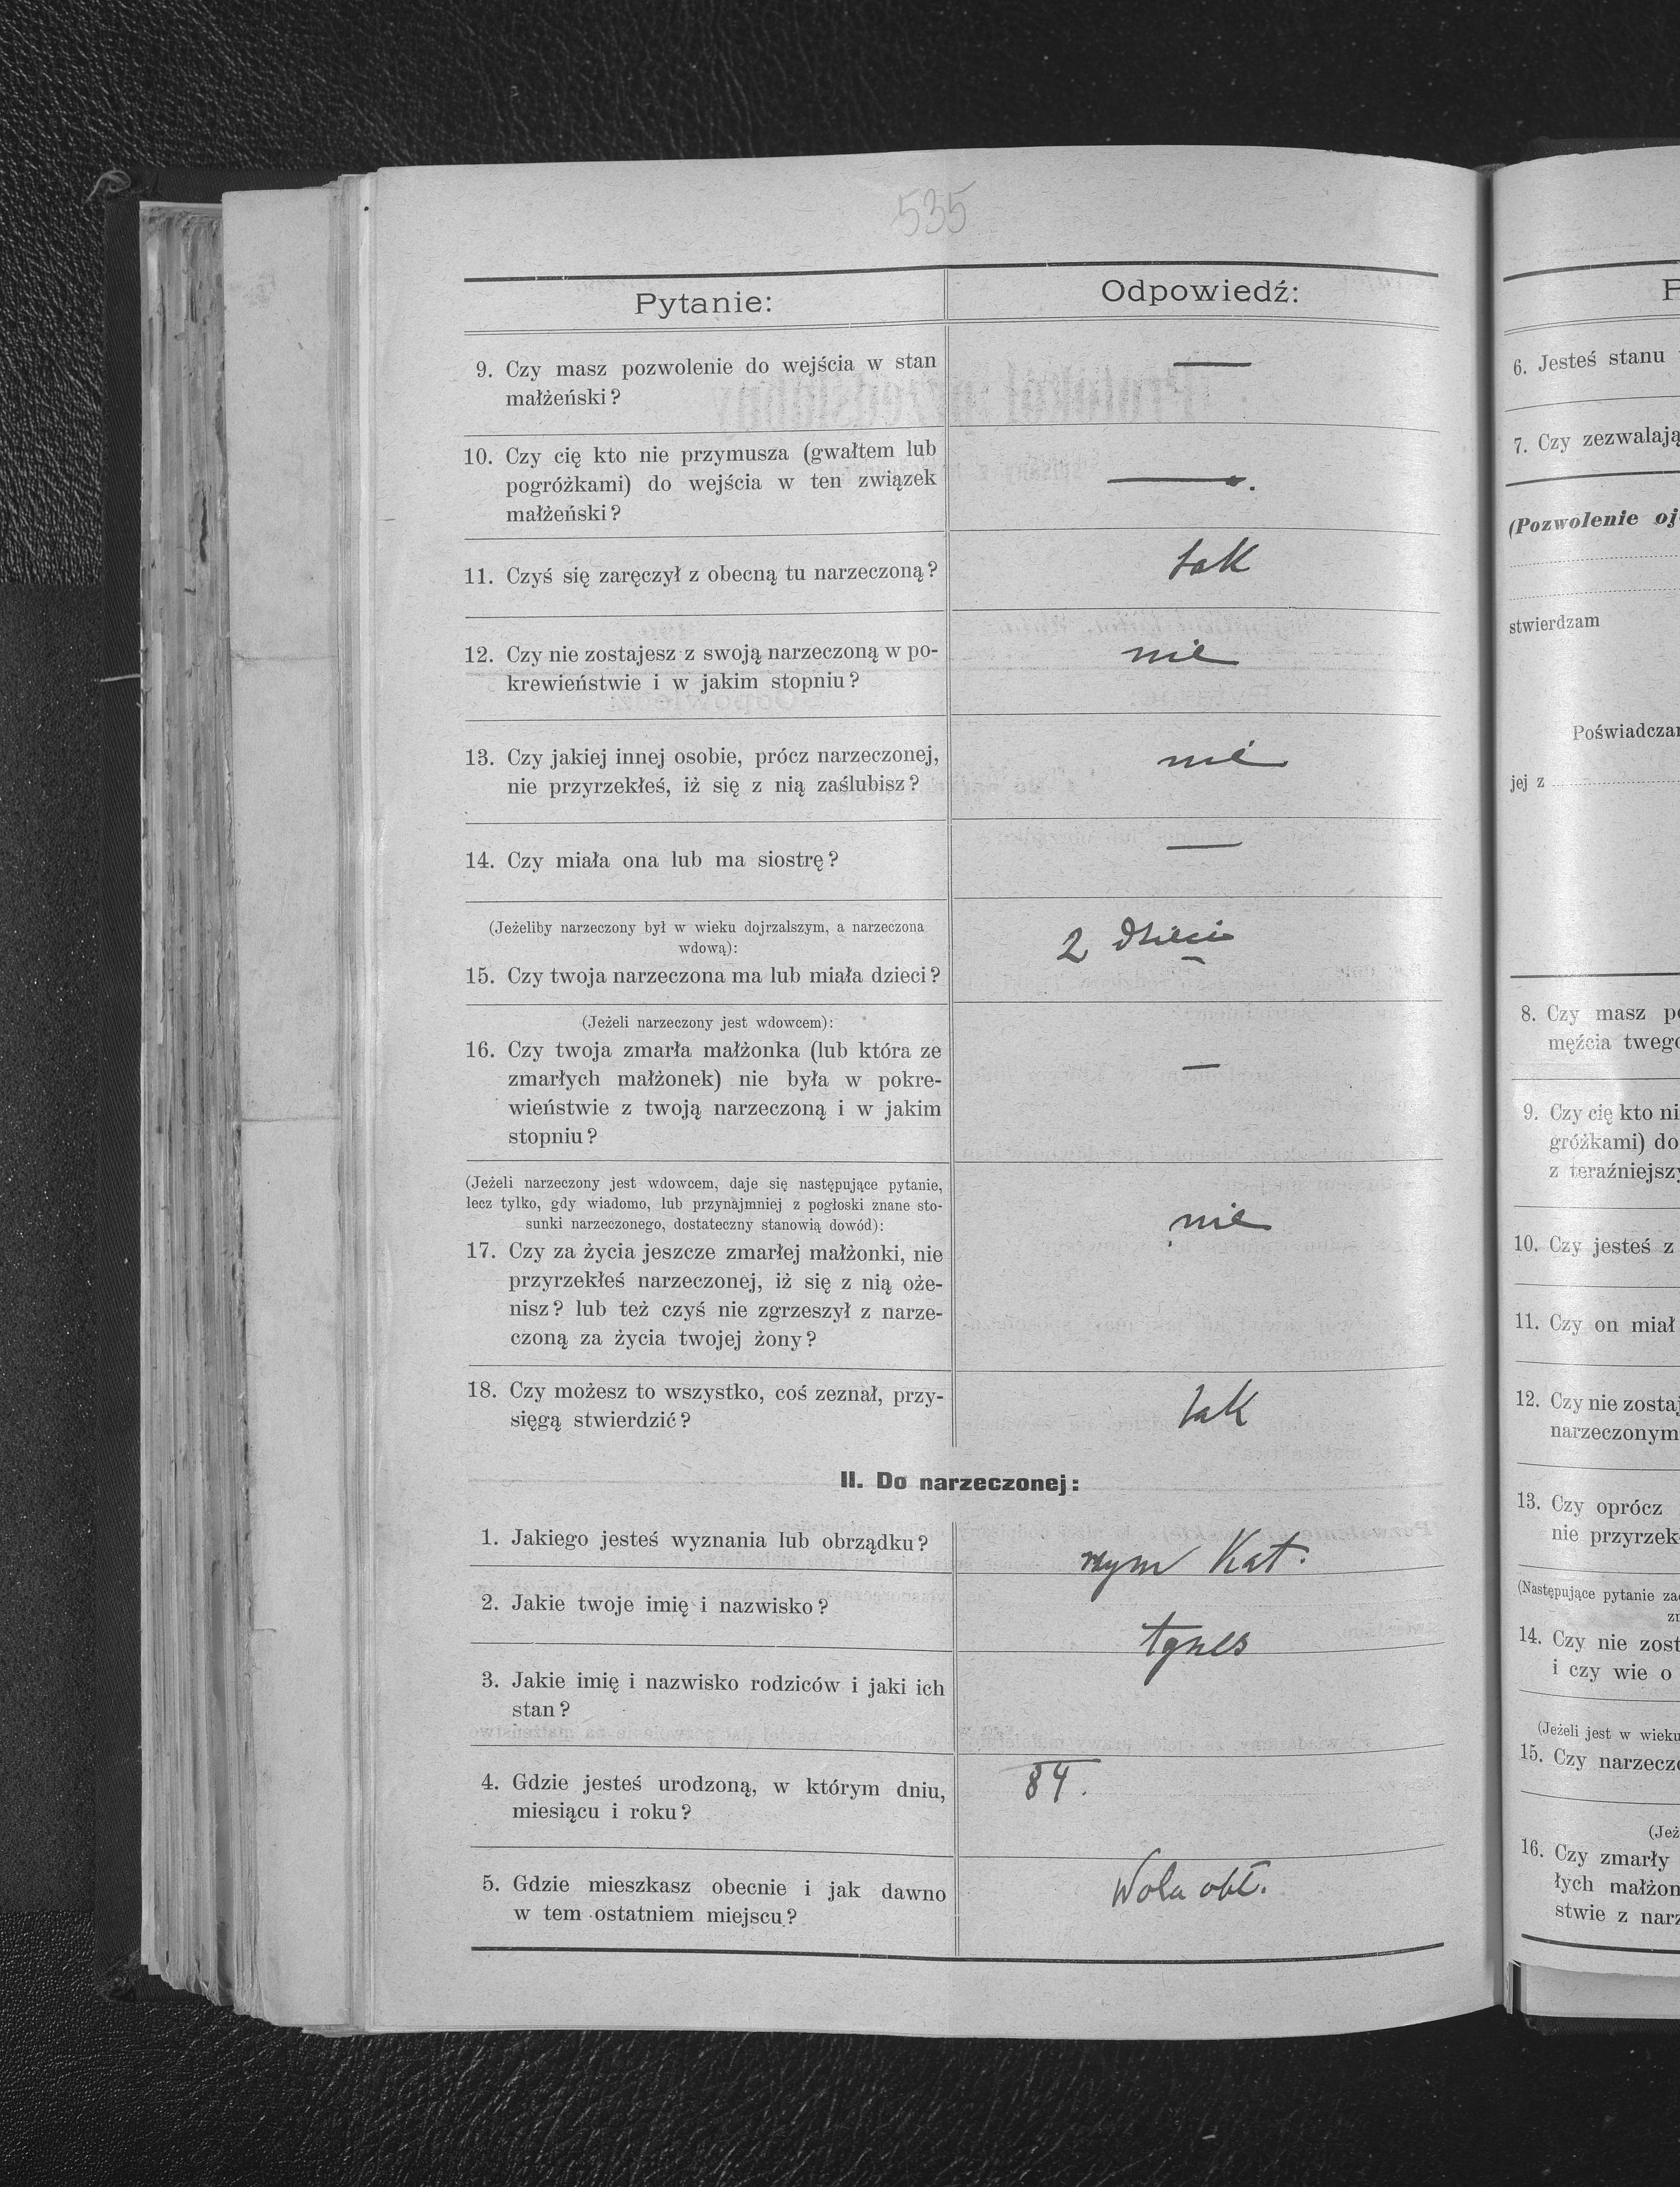 535
Pytanie:
Odpowiedź:
9. Czy masz pozwolenie do wejścia w stan
małżeński?
—
10. Czy cię kto nie przymusza (gwałtem lub
pogróżkami) do wejścia w ten związek
małżeński?
—.
11. Czyś się zaręczył z obecną tu narzeczoną?
tak
12. Czy nie zostajesz z swoją narzeczoną w po-
krewieństwie i w jakim stopniu?
nie
13. Czy jakiej innej osobie, prócz narzeczonej,
nie przyrzekłeś, iż się z nią zaślubisz?
nie
14. Czy miała ona lub ma siostrę?
—
(Jeżeliby narzeczony był w wieku dojrzalszym, a narzeczona
wdową):
15. Czy twoja narzeczona ma lub miała dzieci?
2 dzieci
(Jeżeli narzeczony jest wdowcem):
16. Czy twoja zmarła małżonka (lub która ze
zmarłych małżonek) nie była w pokre-
wieństwie z twoją narzeczoną i w jakim
stopniu?
—
(Jeżeli narzeczony jest wdowcem, daje się następujące pytanie,
lecz tylko, gdy wiadomo, lub przynajmniej z pogłoski znane sto-
sunki narzeczonego, dostateczny stanowią dowód):
17. Czy za życia jeszcze zmarłej małżonki, nie
przyrzekłeś narzeczonej, iż się z nią oże-
nisz? lub też czyś nie zgrzeszył z narze-
czoną za życia twojej żony?
nie
18. Czy możesz to wszystko, coś zeznał, przy-
sięgą stwierdzić?
tak
II. Do narzeczonej:
1. Jakiego jesteś wyznania lub obrządku?
rzym Kat.
2. Jakie twoje imię i nazwisko?
Agnes
3. Jakie imię i nazwisko rodziców i jaki ich
stan?
4. Gdzie jesteś urodzoną, w którym dniu,
miesiącu i roku?
84.
5. Gdzie mieszkasz obecnie i jak dawno
w tem ostatniem miejscu?
Wola
6. Jesteś stanu
7. Czy zezwalają
(Pozwolenie oj
stwierdzam
Poświadczan
jej z
8. Czy masz po
mężcia twego
9. Czy cię kto ni
gróżkami) do
z teraźniejszy
10. Czy jesteś z
11. Czy on miał
12. Czy nie zostaj
narzeczonym
13. Czy oprócz
nie przyrzek
(Następujące pytanie za
zr
14. Czy nie zost
i czy wie o
(Jeżeli jest w wieku
15. Czy narzecz
(Jeż
16. Czy zmarły
łych małżon
stwie z narz